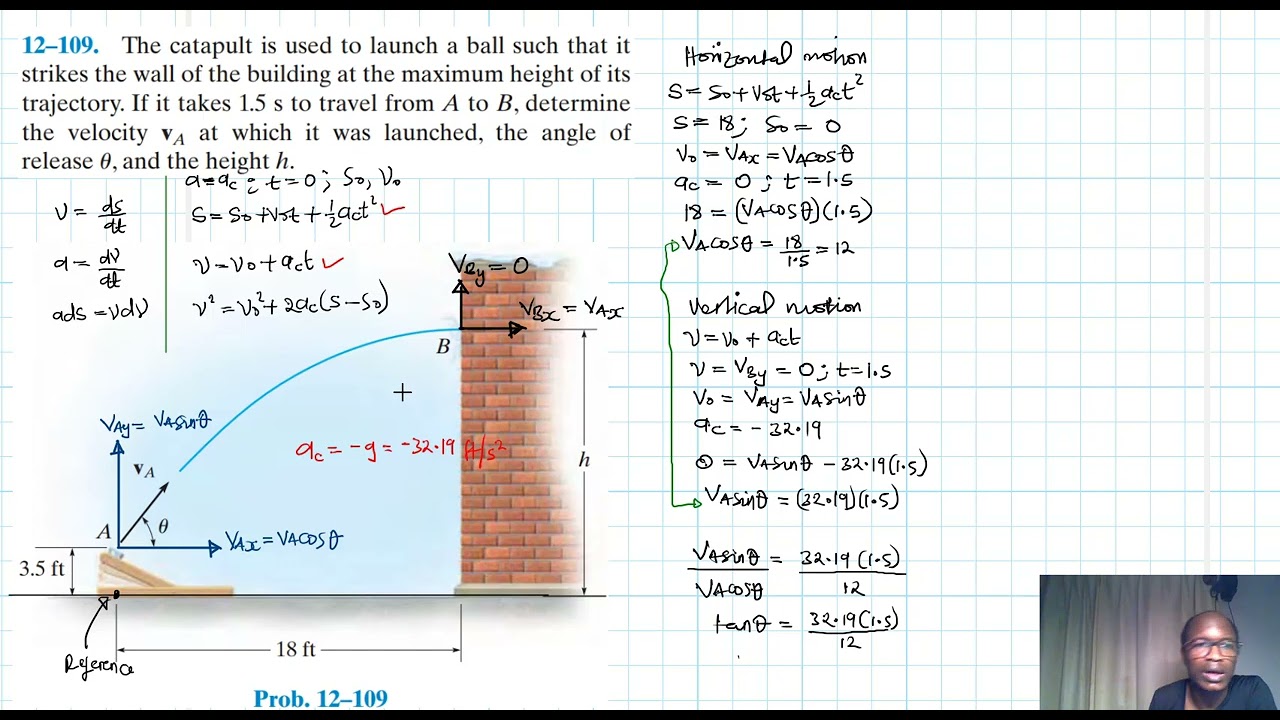 12–109. The catapult is used to launch a ball such that it
strikes the wall of the building at the maximum height of its
trajectory. If it takes 1.5 s to travel from A to B, determine
the velocity vA at which it was launched, the angle of
release θ, and the height h.
a=ac ; t=0 ; So, Vo
V = ds/dt
S = So + Vot + 1/2 act² ✓
a = dv/dt
v = vo + act ✓
ads = vdv
v² = vo² + 2ac(s − so)
VBy = 0
VBx = VAx
B
VAy = VAsinθ
ac = −g = −32.19 ft/s²
vA
h
A
θ
VAx = VAcosθ
3.5 ft
18 ft
Reference
Prob. 12–109
Horizontal motion
S = So + Vot + 1/2 act²
S = 18; So = 0
Vo = VAx = VAcosθ
ac = 0 ; t = 1.5
18 = (VAcosθ)(1.5)
VAcosθ = 18/1.5 = 12
Vertical motion
v = vo + act
v = VBy = 0; t = 1.5
Vo = VAy = VAsinθ
ac = − 32.19
0 = VAsinθ − 32.19(1.5)
VAsinθ = (32.19)(1.5)
VAsinθ/VAcosθ = 32.19(1.5)/12
tanθ = 32.19(1.5)/12